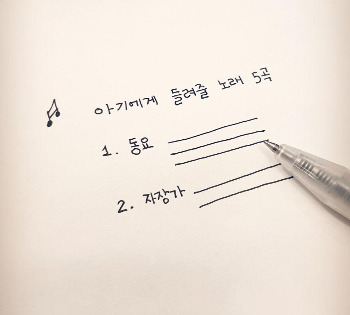 아기에게 들려줄 노래 5곡
1. 동요
2. 자장가